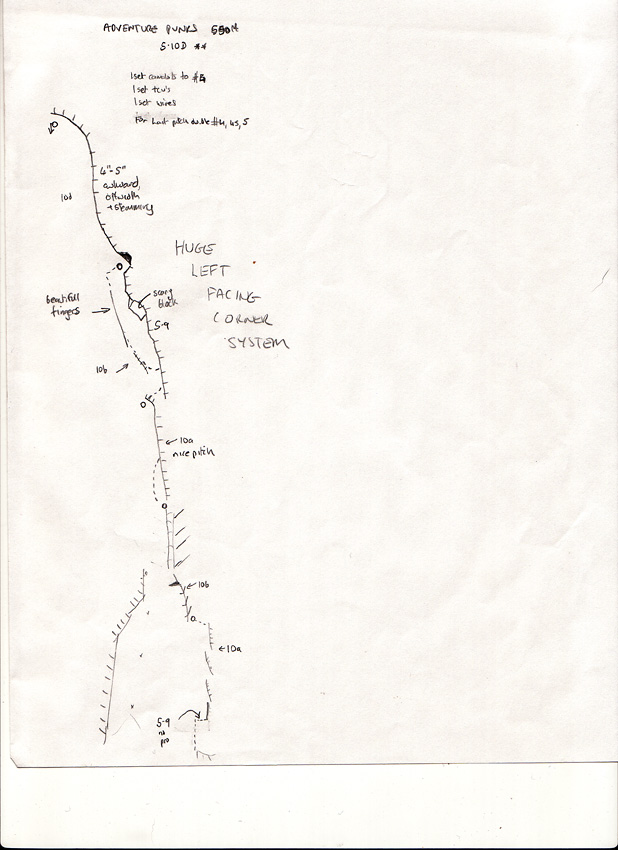 ADVENTURE PUNKS 550M
5.10D **
1 set camalots to #4
1 set tcu's
1 set wires
For last pitch double #4, 4.5, 5
4"-5"
awkward,
offwidth
+ stemming
10d
HUGE
LEFT
FACING
CORNER
SYSTEM
scary
block
beautiful
fingers
5.9
10b
10a
nice pitch
10b
10a
5.9
no
pro